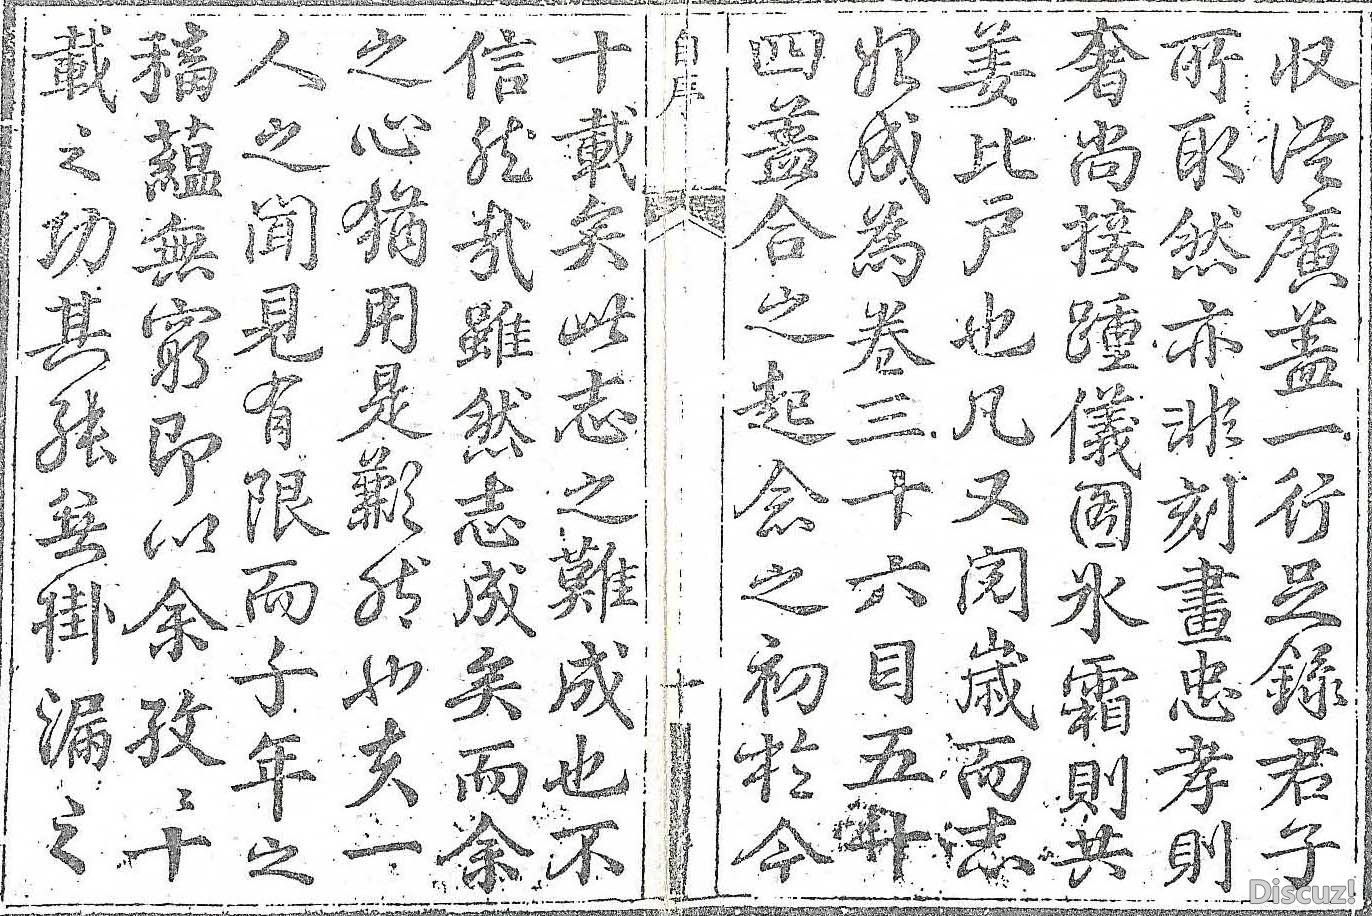 収從廣蓋一行足錄君子
所取然亦非刻畫忠孝則
奢尚接踵儀圖氷霜則共
姜比戶也凡又閱歲而志
始成為卷三十六目五十
四蓋合之起念之初於今
自序
十
十載矣此志之難成也不
信然哉雖然志成矣而余
之心猶用是歉然也夫一
人之聞見有限而千年之
稸蘊無窮即以余孜々十
載之功其能無掛漏之
Discuz!